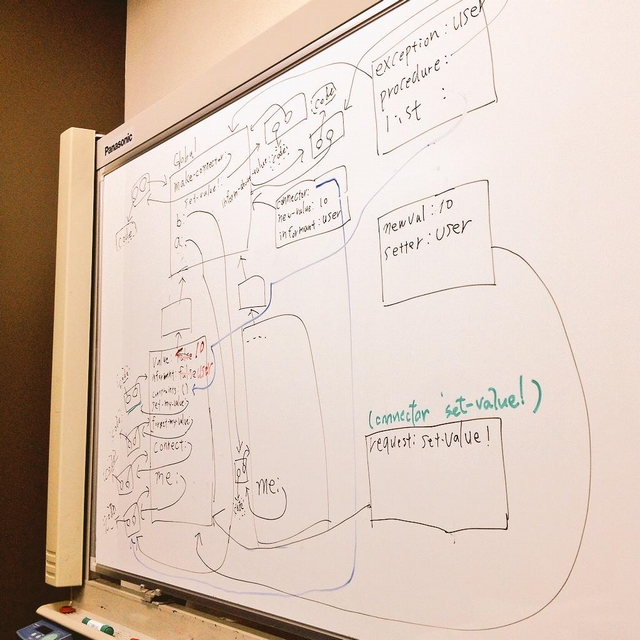 Panasonic
exception: User
procedure:
list :
Global
make-connector
set-value:
b:
a:
code
code
connector:
new-value: 10
informant: user
newval: 10
setter: User
value: false 10
informant false user
constraints ()
set-my-value
forget-my-value
connect:
me:
me:
(connector 'set-value!)
request: set-value!